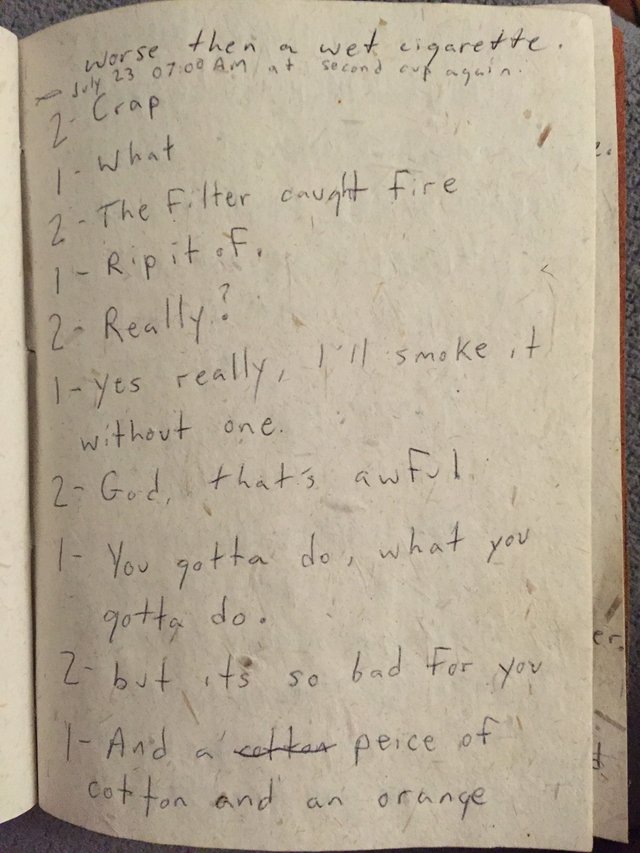 worse then a wet cigarette.
- July 23 07:00 AM at second cup again.
2- Crap
1- What
2- The Filter caught fire
1- Rip it of.
2- Really?
1- yes really, I'll smoke it
without one.
2- God, that's awful
1- You gotta do, what you
gotta do.
2- but its so bad for you
1- And a cotton peice of
cotton and an orange
e.
er.
t